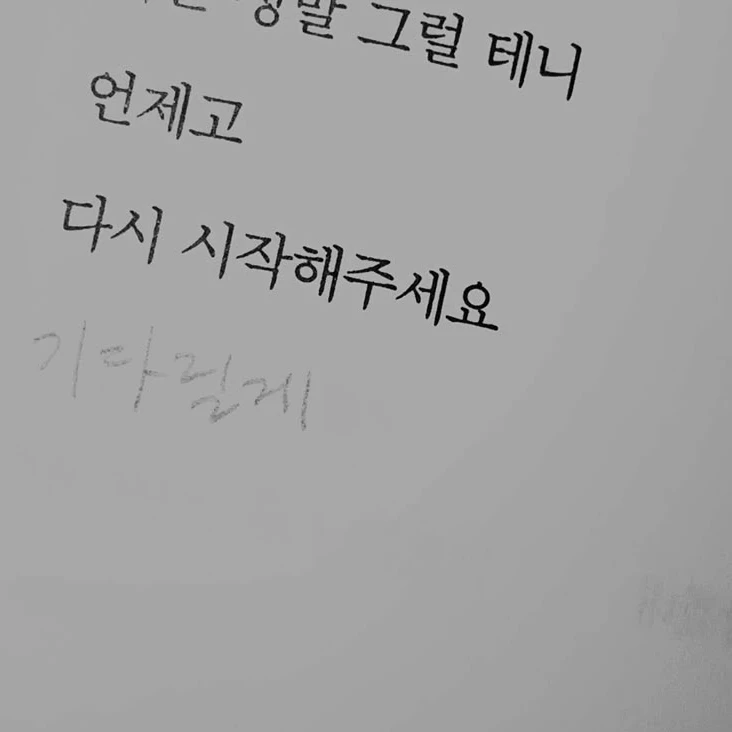 정말 그럴 테니
언제고
다시 시작해주세요
기다릴게